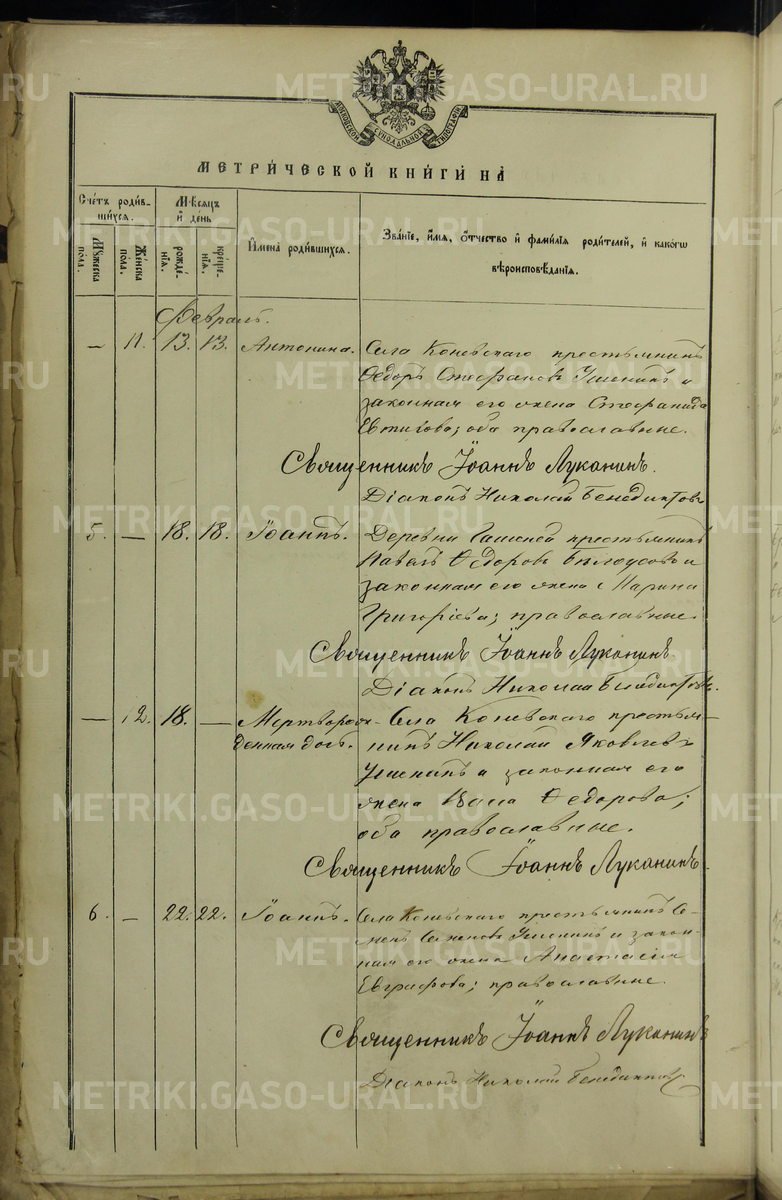 МОСКОВСКОЙ СѴНОДАЛЬНОЙ ТИПОГРАФІИ
МЕТРИ́ЧЕСКОЙ КНИ́ГИ НА̀
Сче́тъ роди́в-
ши́хся.
Мѣ́сяцъ
и҆ де́нь
И҆мена̀ роди́вшихся.
Зва́нїе, и҆́мя, о҆́тчество и҆ фами́лїя роди́телей, и҆ како́гѡ
вѣроисповѣ́данїя.
Мꙋ́жеска
по́ла.
Же́нска
по́ла.
рожде́-
нїя.
креще́-
нїя.
Февраль.
— 11. 13. 13. Антонина. Села Коневскаго крестьянинъ
Ѳедоръ Стефановъ Ушенинъ и
законная его жена Стефанида
Евтихова; оба православные.
Священникъ Іоаннъ Луканинъ.
Діаконъ Николай Бенедиктовъ
5. — 18. 18. Іоаннъ. Деревни крестьянинъ
Павелъ Ѳедоровъ Бѣлоусовъ и
законная его жена Марина
Григоріева; православные.
Священникъ Іоаннъ Луканинъ
Діаконъ Николай Бенедиктовъ.
— 12. 18. — Мертворож- Села Коневскаго крестья-
денная дочь. нинъ Николай Яковлевъ
Ушенинъ и законная его
жена Ѳедорова;
оба православные.
Священникъ Іоаннъ Луканинъ.
6. — 22. 22. Іоаннъ. Села Коневскаго крестьянинъ Се-
менъ Ушенинъ и закон-
ная его жена Анастасія
Евграфова; православные.
Священникъ Іоаннъ Луканинъ
Діаконъ Николай Бенедиктовъ
METRIKI.GASO-URAL.RU